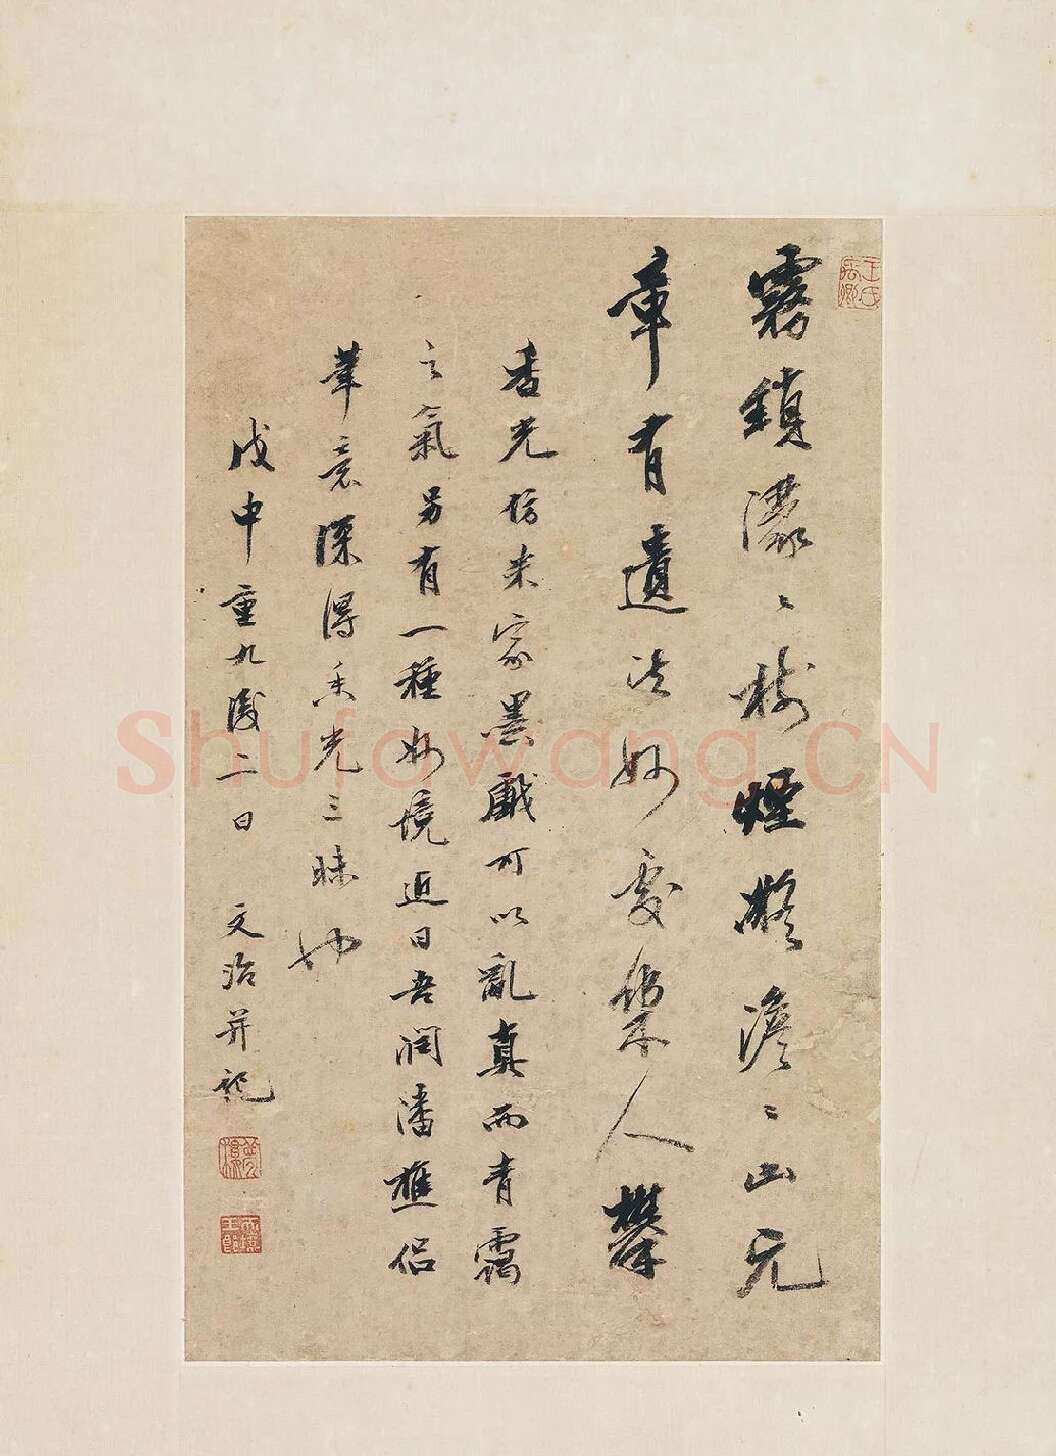 霧鎖濛〻樹煙凝澹〻山元
章有遺法妙處人攀
香光仿米家墨戲可以亂真而青靄
之氣另有一種妙境近日吾潤潘樵侶
筆意深得香光三昧也
戊申重九後二日 文治并記
王氏禹卿
Shufawang.CN